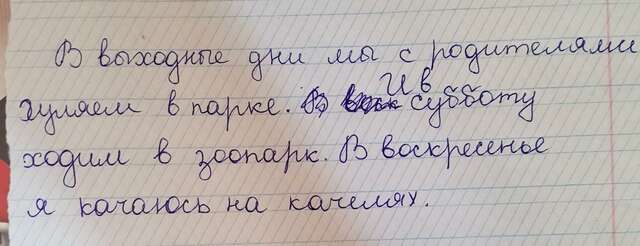 В выходные дни мы с родителями
гуляем в парке. И в субботу
ходим в зоопарк. В воскресенье
я качаюсь на качелях.